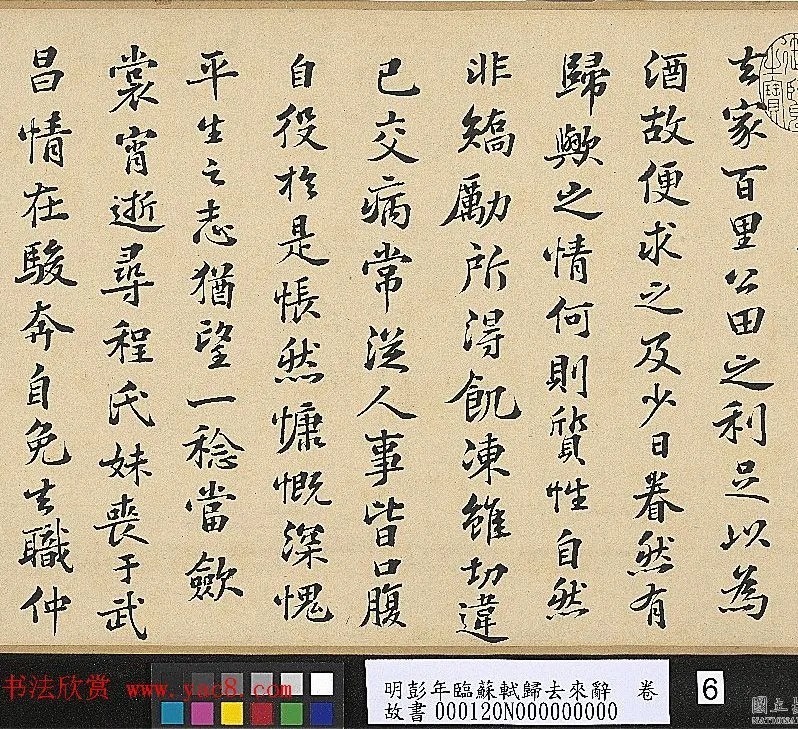 去家百里公田之利足以為
酒故便求之及少日眷然有
歸歟之情何則質性自然
非矯勵所得飢凍雖切違
已交病常從人事皆口腹
自役於是悵然慷慨深愧
平生之志猶望一稔當斂
裳宵逝尋程氏妹喪于武
昌情在駿奔自免去職仲
书法欣赏 www.yac8.com
明彭年臨蘇軾歸去來辭 卷
故書 000120N000000000
6
國立
NATIONAL